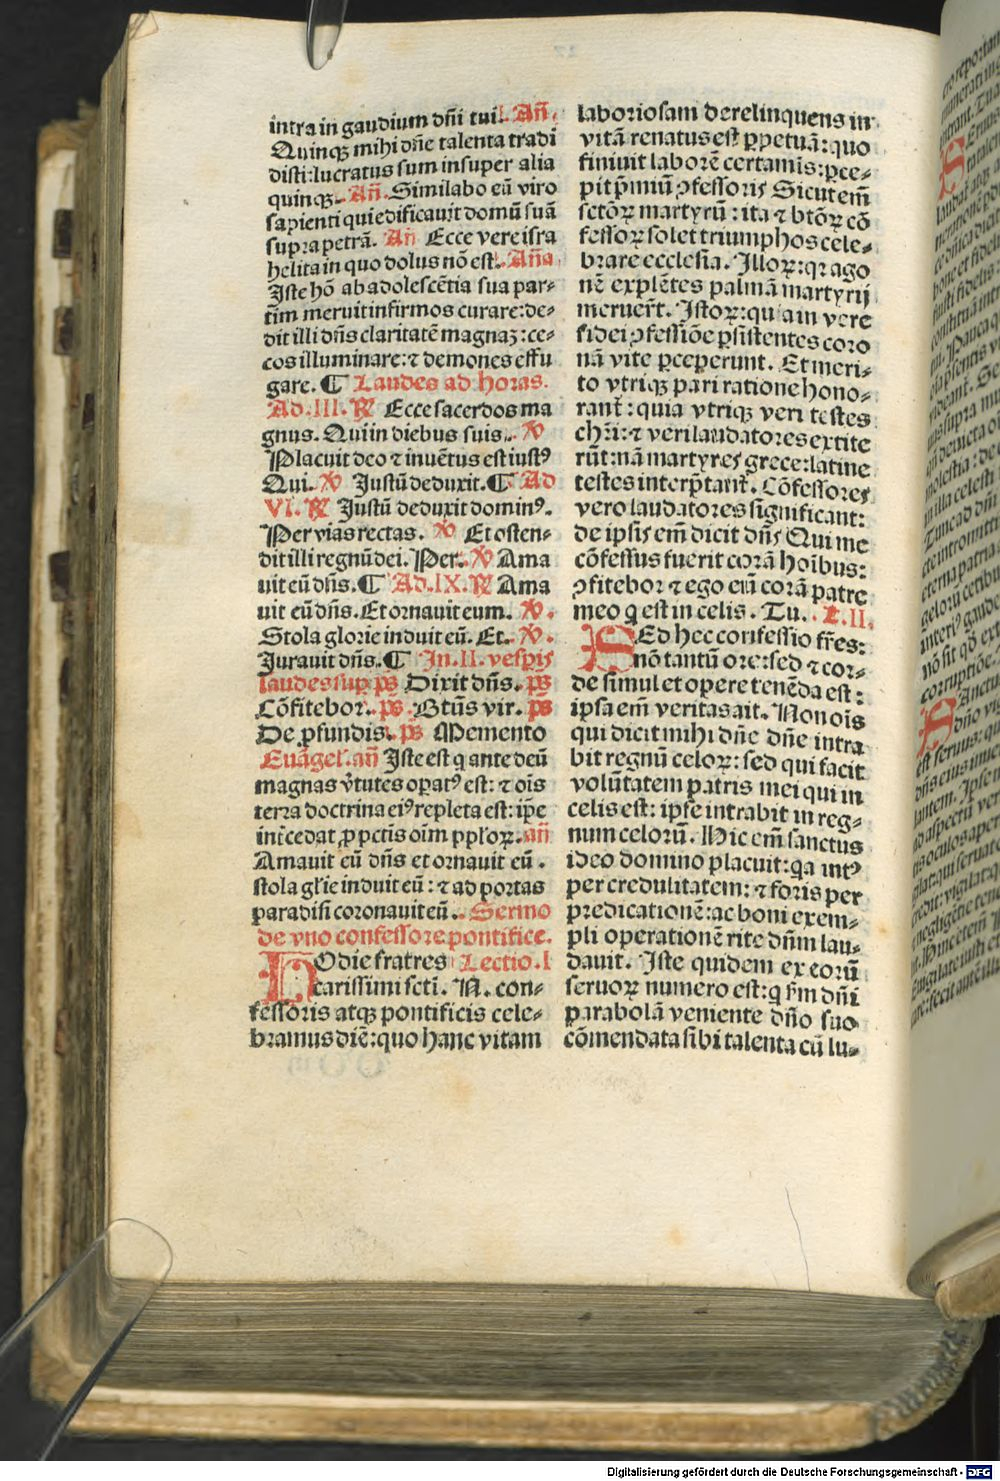 intra in gaudium dn̄i tui. Añ.
Quinqꝫ mihi dn̄e talenta tradi
disti: lucratus sum insuper alia
quinqꝫ. Añ. Similabo eū viro
sapienti qui edificauit domū suā
supra petrā. Añ Ecce vere isra
helita in quo dolus nō est. Aña
Iste hō ab adolescētia sua par⸗
tim meruit infirmos curare: de⸗
dit illi dn̄s claritatē magnaꝫ: ce⸗
cos illuminare: ⁊ demones effu
gare. ¶ Laudes ad horas.
Ad .III. ꝶ Ecce sacerdos ma
gnus. Qui in diebus suis. ℣
Placuit deo ⁊ inuētus est iustꝰ
Qui. ℣ Justū deduxit. ¶ Ad
VI. ꝶ Justū deduxit dominꝰ.
Per vias rectas. ℣ Et osten⸗
dit illi regnū dei. Per. ℣ Ama
uit eū dn̄s. ¶ Ad .IX. ꝶ Ama
uit eū dn̄s. Et ornauit eum. ℣.
Stola glorie induit eū. Et. ℣.
Jurauit dn̄s. ¶ In .II. vespis
laudes sup ps̄ Dixit dn̄s. ps̄
Cōfitebor. ps̄. Btūs vir. ps̄
De ꝓfundis. ps̄ Memento
Euāgel. añ Iste est q ante deū
magnas v̄tutes opatꝰ est: ⁊ oīs
terra doctrina eiꝰ repleta est: ip̄e
int̄cedat ꝓ pctīs oīm pplōꝝ. añ
Amauit eū dn̄s et ornauit eū.
stola gl̄ie induit eū: ⁊ ad portas
paradisi coronauit eū. Sermo
de vno confessore pontifice.
HOdie fratres Lectio .I
carissimi scti. N. con⸗
fessoris atqꝫ pontificis cele⸗
bramus diē: quo hanc vitam
laboriosam derelinquens in
vitā renatus est ꝑpetuā: quo
finiuit laborē certamis: ꝑce⸗
pit p̄miū ꝯfessoris Sicut em̄
sctōꝝ martyrū: ita ⁊ btōꝝ cō
fessoꝝ solet triumphos cele⸗
brare ecclesia. Illoꝝ: qꝛ ago
nē explētes palmā martyrij
meruer̄t. Istoꝝ: quia in vere
fidei ꝯfessiōe ꝑsistentes coro
nā vite ꝑceperunt. Et meri⸗
to vtriqꝫ pari ratione hono⸗
rant̄: quia vtriqꝫ veri testes
chr̄i: ⁊ veri laudatores extite
rūt: nā martyres grece: latine
testes interp̄tant̄. Cōfessores
vero laudatores significant:
de ipsis em̄ dicit dn̄s Qui me
cōfessus fuerit corā hoībus:
ꝯfitebor ⁊ ego eū corā patre
meo q est in celis. Tu. L.II.
SEd hec confessio fr̄es:
nō tantū ore: sed ⁊ cor⸗
de simul et opere tenēda est:
ipsa em̄ veritas ait. Non oīs
qui dicit mihi dn̄e dn̄e intra
bit regnū celoꝝ: sed qui facit
volūtatem patris mei qui in
celis est: ipse intrabit in reg⸗
num celorū. Hic em̄ sanctus
ideo domino placuit: qa intꝰ
per credulitatem: ⁊ foris per
predicationē: ac boni exem⸗
pli operationē rite dn̄m lau⸗
dauit. Iste quidem ex eorū
seruoꝝ numero est: q s̄m dn̄i
parabolā veniente dn̄o suo
cōmendata sibi talenta cū lu⸗
Digitalisierung gefördert durch die Deutsche Forschungsgemeinschaft - DFG